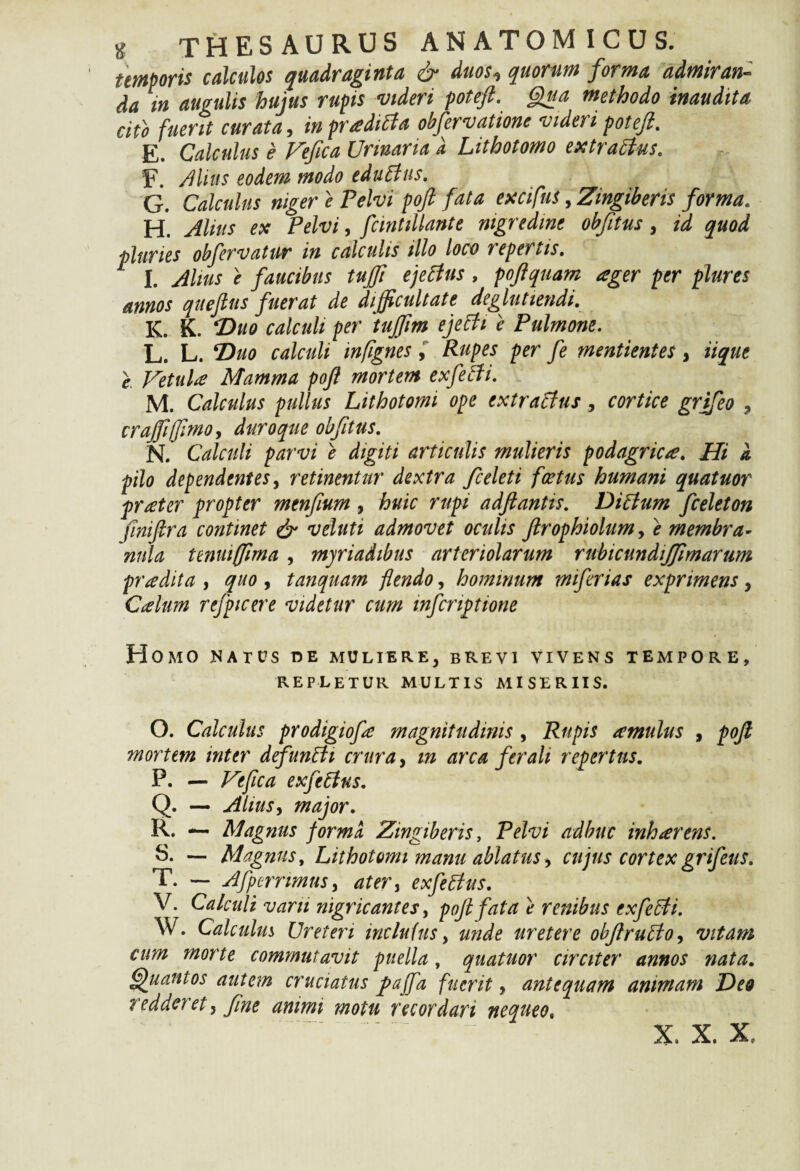 8 THESAURUS ANATOMICUS.
temporis calculos quadraginta & duos, quorum forma admiran-
da in augulis hujus rupis videri potest. Qua methodo inaudita
cito fuerit curata, in prædicta observatione videri potest.
E. Calculus è Vesica Urinaria à Lithotomo extractus.
F. Alius eodem modo eductus.
G. Calculus niger è Pelvi post fata excisus, Zingiberis forma.
H. Alius ex Pelvi, scintillante nigredine obsitus, id quod
pluries observatur in calculis illo loco repertis.
I. Alius è faucibus tussi ejectus, postquam æger per plures
annos questus fuerat de difficultate deglutiendi.
K. K. Duo calculi per tussim ejecti è Pulmone.
L. L. Duo calculi insignes, Rupes per se mentientes, iique
è Vetulæ Mamma post mortem exsecti.
M. Calculus pullus Lithotomi ope extractus, cortice griseo,
crassissimo, duroque obsitus.
N. Calculi parvi è digiti articulis mulieris podagricæ. Hi à
pilo dependentes, retinentur dextra sceleti fœtus humani quatuor
præter propter mensium, huic rupi adstantis. Dictum sceleton
sinistra continet & veluti admovet oculis strophiolum, è membra-
nula tenuissima, myriadibus arteriolarum rubicundissimarum
prædita, quo, tanquam flendo, hominum miserias exprimens,
Cælum respicere videtur cum inscriptione
HOMO NATUS DE MULIERE, BREVI VIVENS TEMPORE,
REPLETUR MULTIS MISERIIS.
O. Calculus prodigiosæ magnitudinis, Rupis æmulus, post
mortem inter defuncti crura, in arca ferali repertus.
P. — Vesica exsectus.
Q. — Alius, major.
R. — Magnus formâ Zingiberis, Pelvi adhuc inhærens.
S. — Magnus, Lithotomi manu ablatus, cujus cortex griseus.
T. — Asperrimus, ater, exsectus.
V. Calculi varii nigricantes, post fata è renibus exsecti.
W. Calculus Ureteri inclusus, unde uretere obstructo, vitam
cum morte commutavit puella, quatuor circiter annos nata.
Quantos autem cruciatus passa fuerit, antequam animam Deo
redderet, sine animi motu recordari nequeo.
X. X. X.